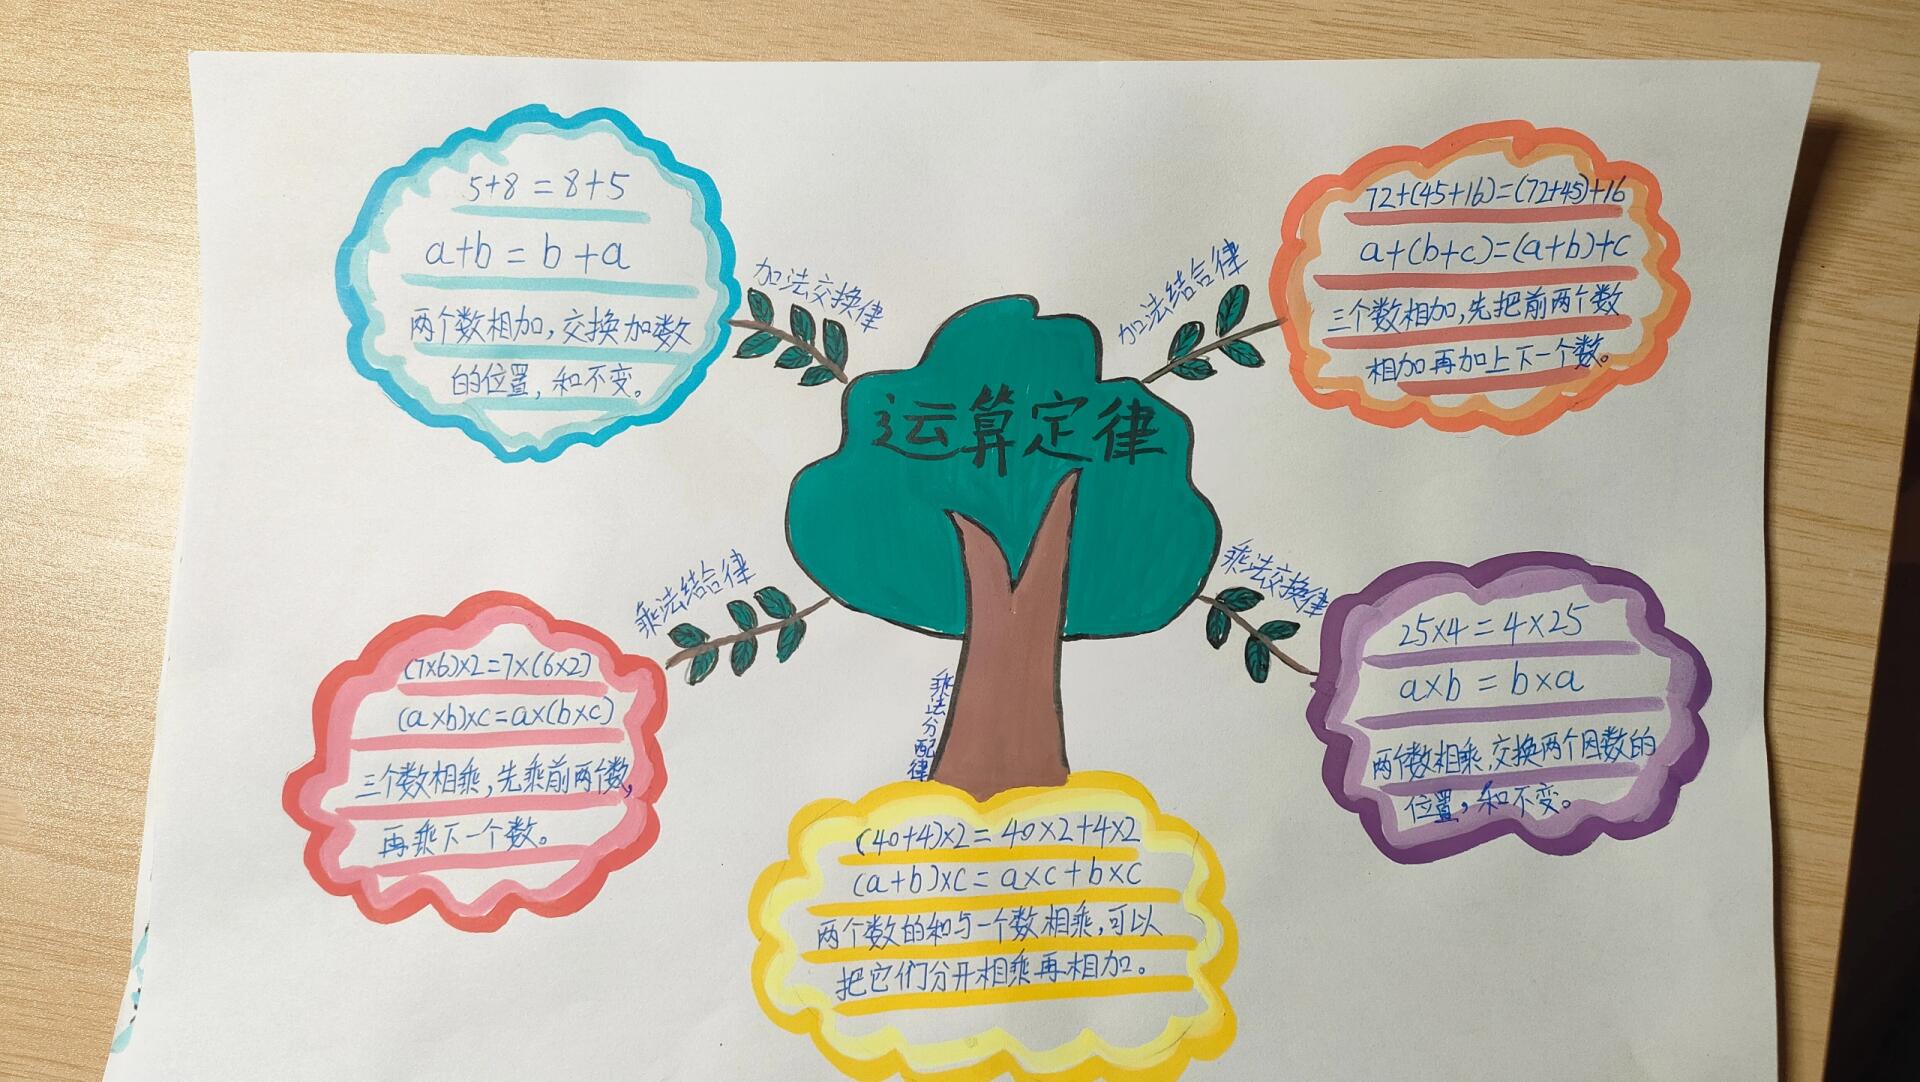 5+8=8+5
a+b=b+a
两个数相加,交换加数
的位置,和不变。
加法交换律
加法结合律
72+(45+16)=(72+45)+16
a+(b+c)=(a+b)+c
三个数相加,先把前两个数
相加再加上下一个数。
运算定律
乘法结合律
(7×6)×2=7×(6×2)
(a×b)×c=a×(b×c)
三个数相乘,先乘前两个数,
再乘下一个数。
乘法交换律
25×4=4×25
a×b=b×a
两个数相乘,交换两个因数的
位置,和不变。
乘法分配律
(40+4)×2=40×2+4×2
(a+b)×c=a×c+b×c
两个数的和与一个数相乘,可以
把它们分开相乘再相加。